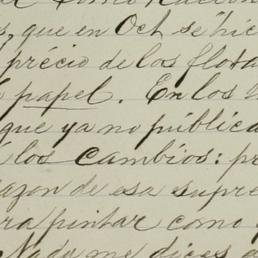 , que en Oct se hic
precio de los flota
papel. En los
que ya no publica
los cambios: pr
razon de esa supre
ra pintar como
Nada me dices a